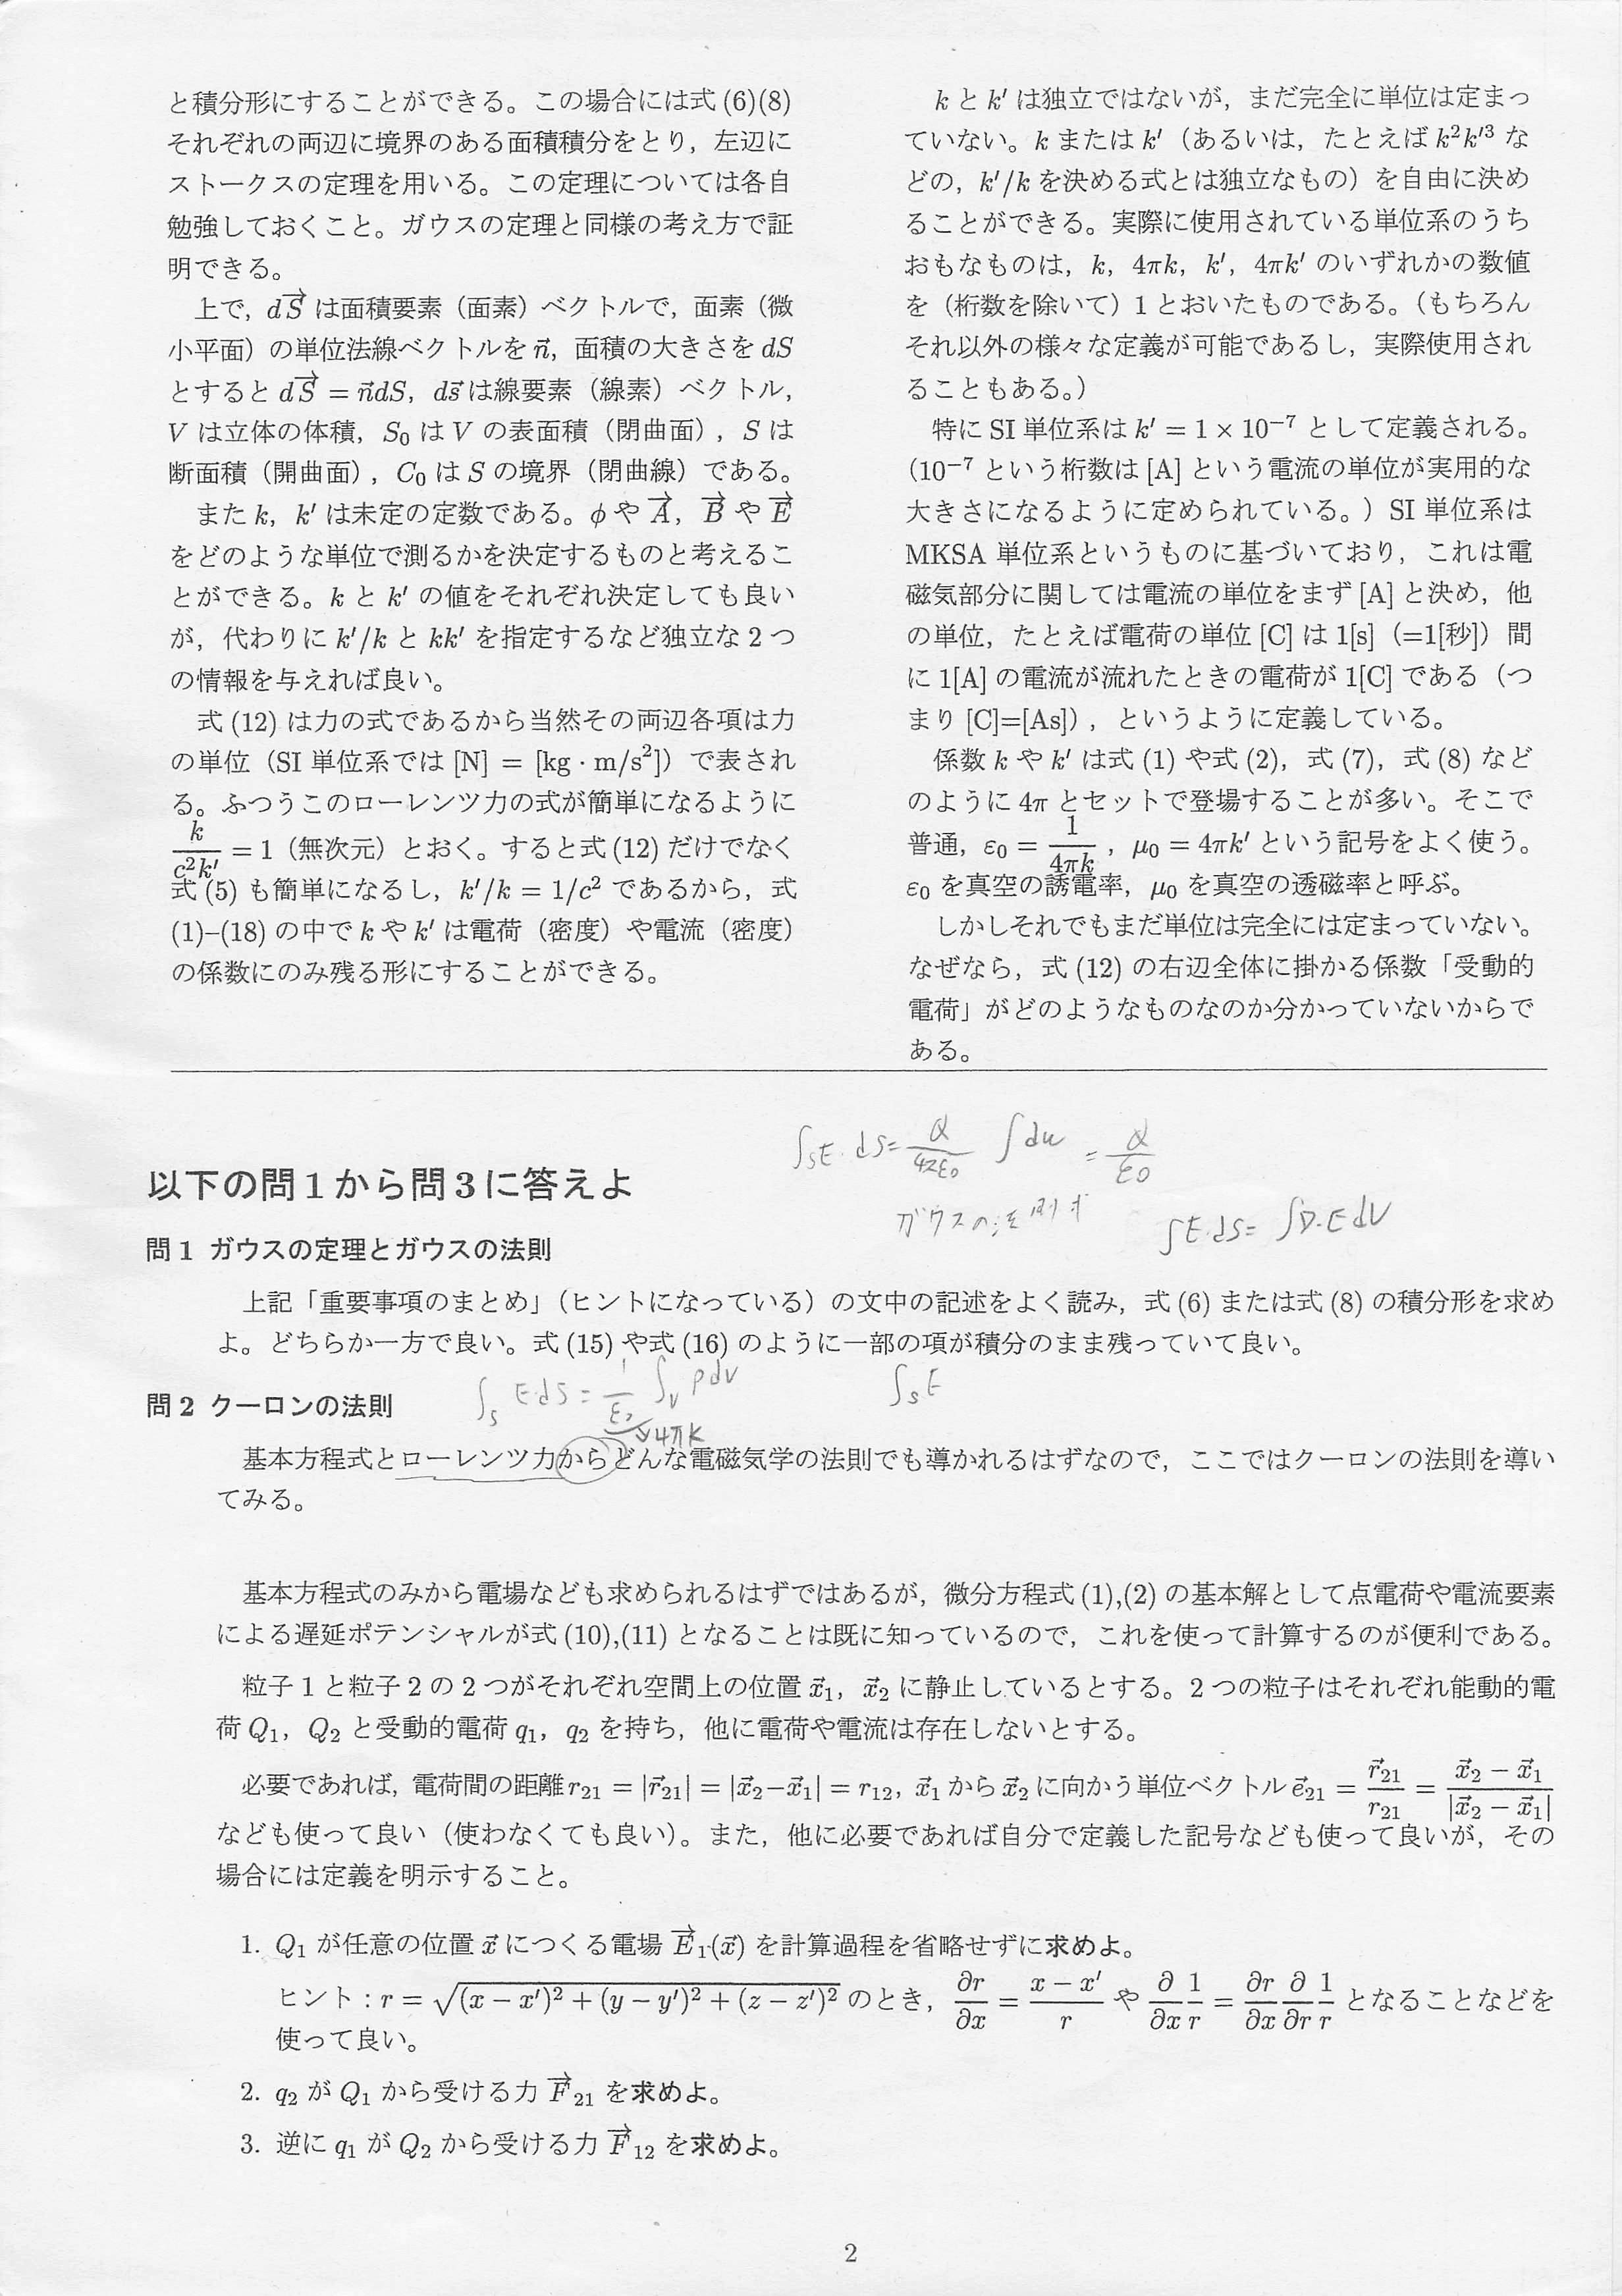 と積分形にすることができる。この場合には式 (6)(8)
それぞれの両辺に境界のある面積積分をとり，左辺に
ストークスの定理を用いる。この定理については各自
勉強しておくこと。ガウスの定理と同様の考え方で証
明できる。
上で，dS→ は面積要素（面素）ベクトルで，面素（微
小平面）の単位法線ベクトルを n→，面積の大きさを dS
とすると dS→ = n→dS，ds→ は線要素（線素）ベクトル，
V は立体の体積，S₀ は V の表面積（閉曲面），S は
断面積（開曲面），C₀ は S の境界（閉曲線）である。
また k，k′ は未定の定数である。ϕ や A→，B→ や E→
をどのような単位で測るかを決定するものと考えるこ
とができる。k と k′ の値をそれぞれ決定しても良い
が，代わりに k′/k と kk′ を指定するなど独立な 2 つ
の情報を与えれば良い。
式 (12) は力の式であるから当然その両辺各項は力
の単位（SI 単位系では [N] = [kg · m/s²]）で表され
る。ふつうこのローレンツ力の式が簡単になるように
k/(c²k′) = 1（無次元）とおく。すると式 (12) だけでなく
式 (5) も簡単になるし，k′/k = 1/c² であるから，式
(1)–(18) の中で k や k′ は電荷（密度）や電流（密度）
の係数にのみ残る形にすることができる。
k と k′ は独立ではないが，まだ完全に単位は定まっ
ていない。k または k′（あるいは，たとえば k²k′³ な
どの，k′/k を決める式とは独立なもの）を自由に決め
ることができる。実際に使用されている単位系のうち
おもなものは，k，4πk，k′，4πk′ のいずれかの数値
を（桁数を除いて）1 とおいたものである。（もちろん
それ以外の様々な定義が可能であるし，実際使用され
ることもある。）
特に SI 単位系は k′ = 1 × 10⁻⁷ として定義される。
（10⁻⁷ という桁数は [A] という電流の単位が実用的な
大きさになるように定められている。）SI 単位系は
MKSA 単位系というものに基づいており，これは電
磁気部分に関しては電流の単位をまず [A] と決め，他
の単位，たとえば電荷の単位 [C] は 1[s]（=1[秒]）間
に 1[A] の電流が流れたときの電荷が 1[C] である（つ
まり [C]=[As]），というように定義している。
係数 k や k′ は式 (1) や式 (2)，式 (7)，式 (8) など
のように 4π とセットで登場することが多い。そこで
普通，ε₀ = 1/(4πk)，μ₀ = 4πk′ という記号をよく使う。
ε₀ を真空の誘電率，μ₀ を真空の透磁率と呼ぶ。
しかしそれでもまだ単位は完全には定まっていない。
なぜなら，式 (12) の右辺全体に掛かる係数「受動的
電荷」がどのようなものなのか分かっていないからで
ある。
∫sE·dS= Q/4πε0 ∫du = Q/ε0
以下の問 1 から問 3 に答えよ
ガウスの法則
∫E·dS= ∫D·E dV
問 1 ガウスの定理とガウスの法則
上記「重要事項のまとめ」（ヒントになっている）の文中の記述をよく読み，式 (6) または式 (8) の積分形を求め
よ。どちらか一方で良い。式 (15) や式 (16) のように一部の項が積分のまま残っていて良い。
∫s E·dS = 1/ε0 ∫v ρdV
∫sE
→4πK
問 2 クーロンの法則
基本方程式とローレンツ力からどんな電磁気学の法則でも導かれるはずなので，ここではクーロンの法則を導い
てみる。
基本方程式のみから電場なども求められるはずではあるが，微分方程式 (1),(2) の基本解として点電荷や電流要素
による遅延ポテンシャルが式 (10),(11) となることは既に知っているので，これを使って計算するのが便利である。
粒子 1 と粒子 2 の 2 つがそれぞれ空間上の位置 x→₁，x→₂ に静止しているとする。2 つの粒子はそれぞれ能動的電
荷 Q₁，Q₂ と受動的電荷 q₁，q₂ を持ち，他に電荷や電流は存在しないとする。
必要であれば，電荷間の距離 r₂₁ = |r→₂₁| = |x→₂−x→₁| = r₁₂，x→₁ から x→₂ に向かう単位ベクトル e→₂₁ = r→₂₁/r₂₁ = (x→₂ − x→₁)/|x→₂ − x→₁|
なども使って良い（使わなくても良い）。また，他に必要であれば自分で定義した記号なども使って良いが，その
場合には定義を明示すること。
1. Q₁ が任意の位置 x→ につくる電場 E→₁(x→) を計算過程を省略せずに求めよ。
ヒント：r = √((x − x′)² + (y − y′)² + (z − z′)²) のとき，∂r/∂x = (x − x′)/r や ∂/∂x 1/r = ∂r/∂x ∂/∂r 1/r となることなどを
使って良い。
2. q₂ が Q₁ から受ける力 F→₂₁ を求めよ。
3. 逆に q₁ が Q₂ から受ける力 F→₁₂ を求めよ。
2